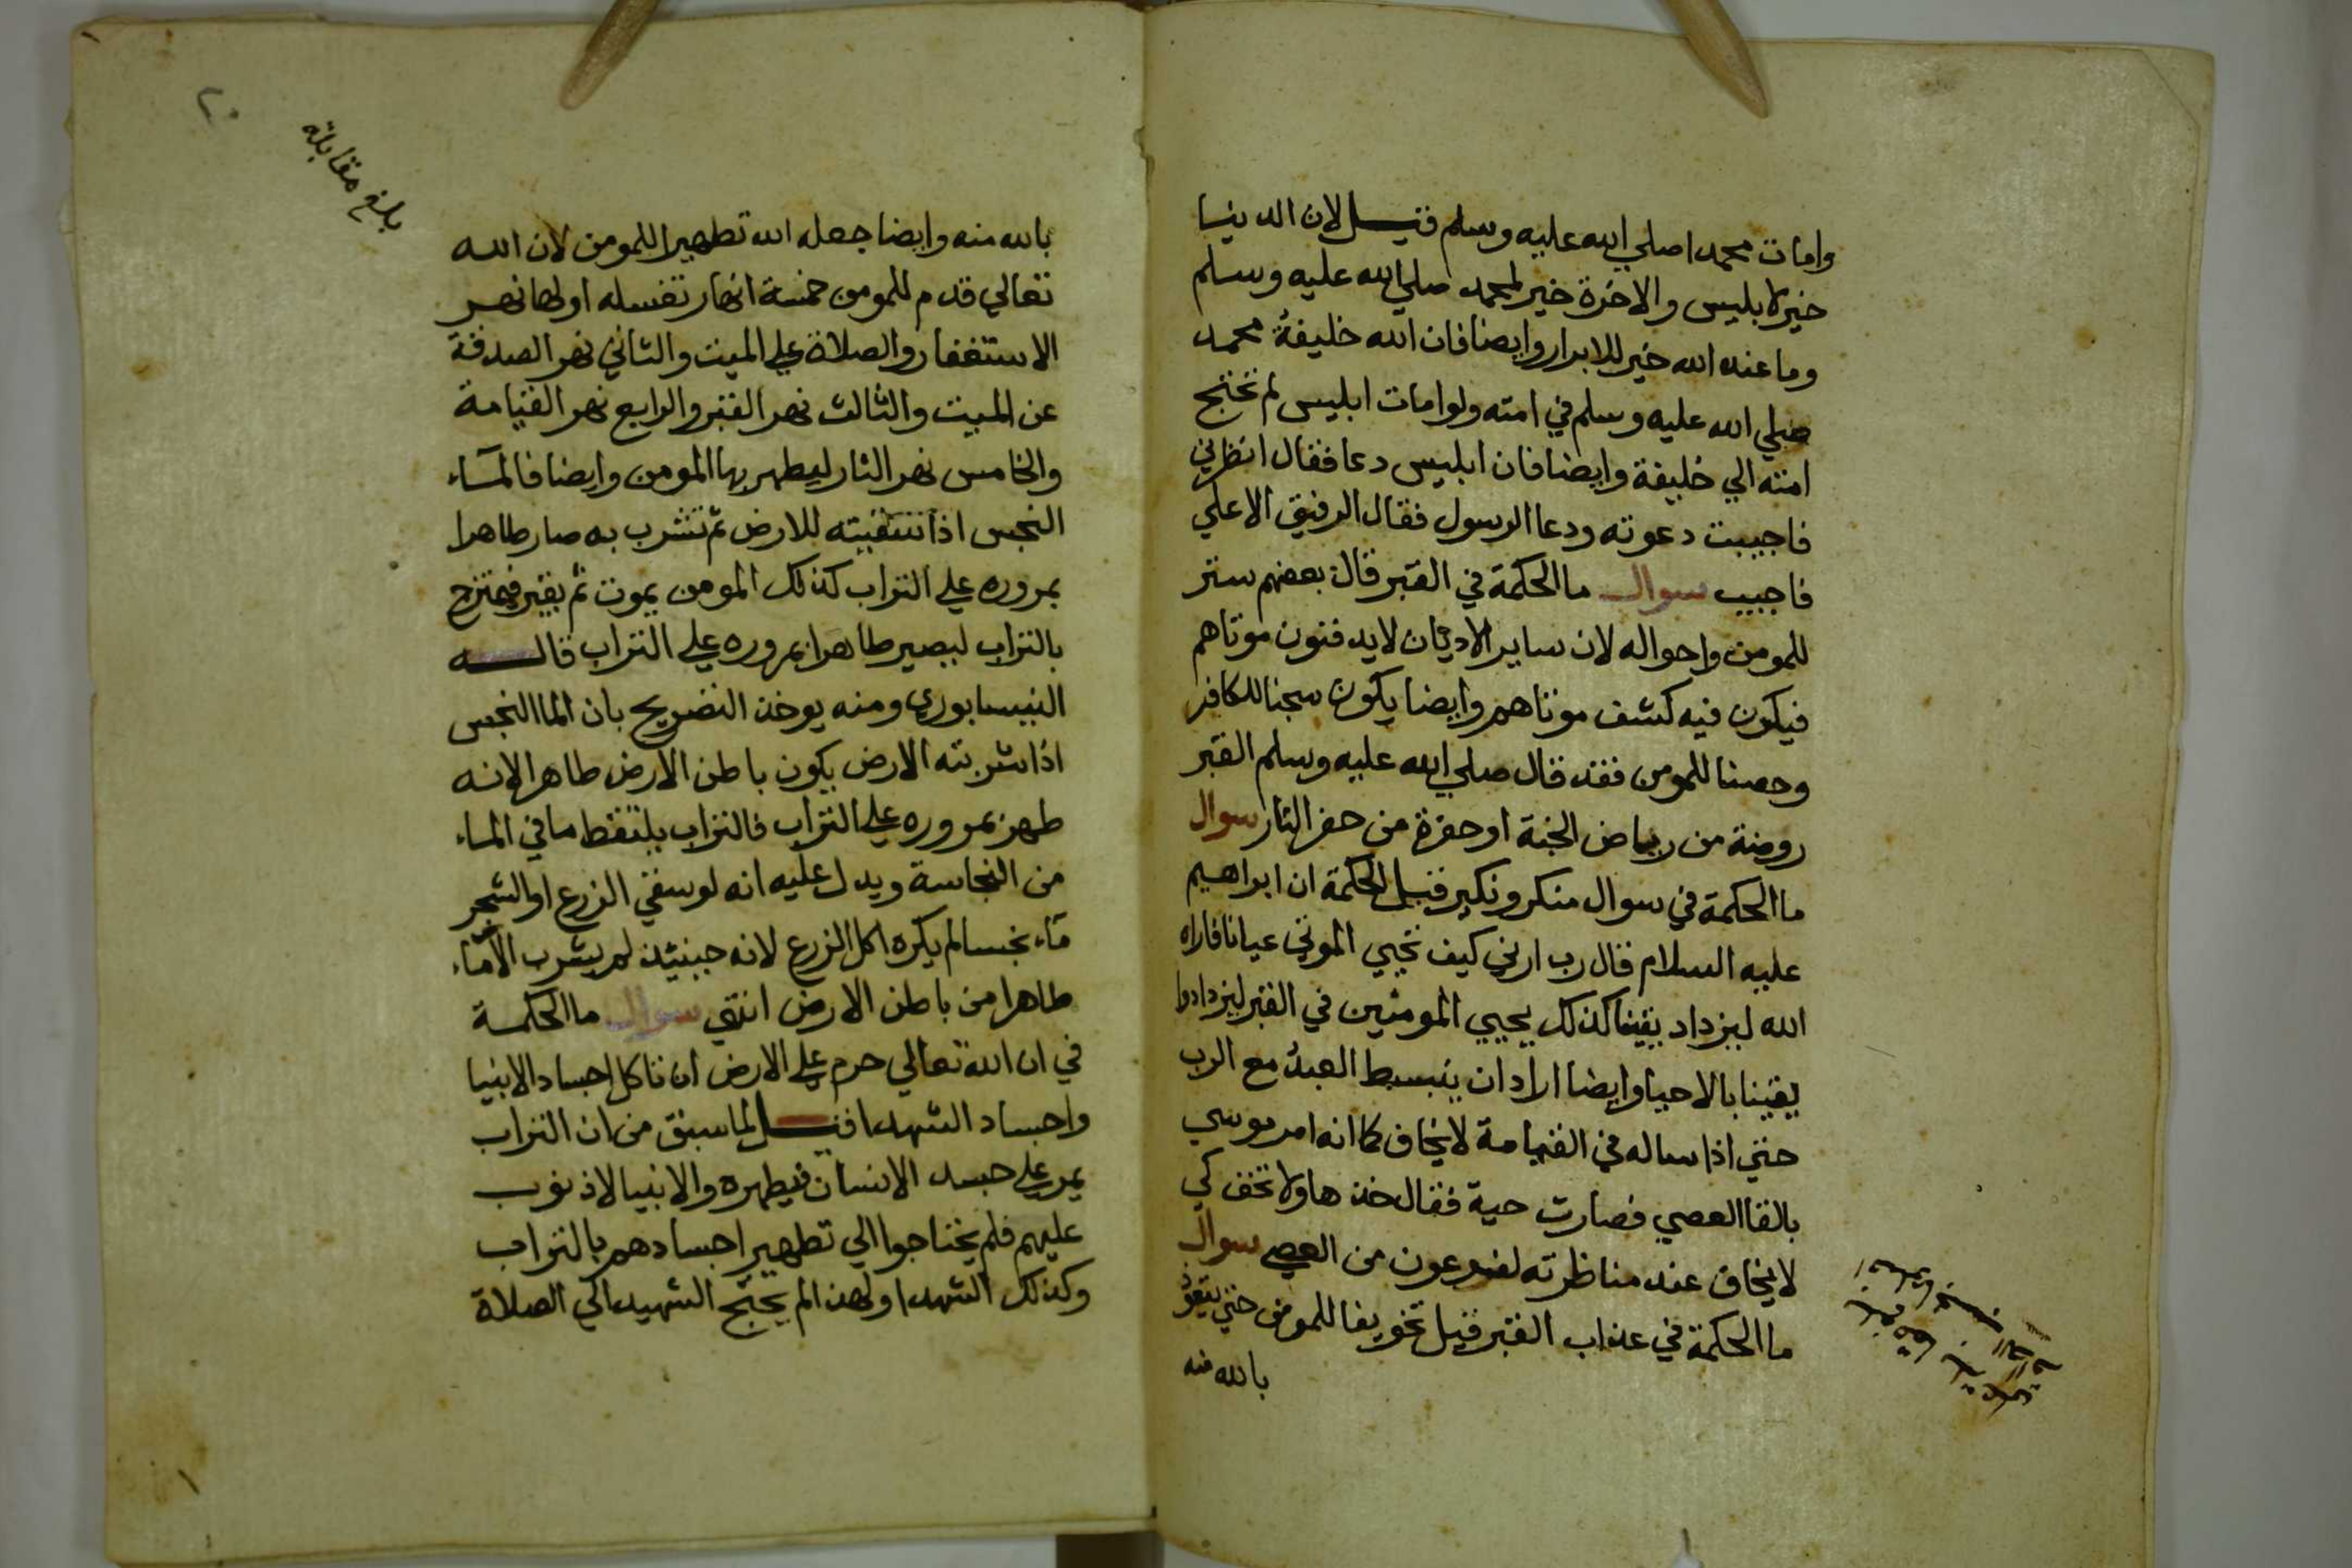 وامات محمدا صلي الله عليه وسلم قيل لان الدنيا
خير لابليس والاخرة خير لمحمد صلي الله عليه وسلم
وما عند الله خير للابرار وايضا فان الله خليفة محمد
صلي الله عليه وسلم في امته ولو امات ابليس لم تحتج
امته الي خليفة وايضا فان ابليس دعا فقال انظرني
فاجيبت دعوته ودعا الرسول فقال الرفيق الاعلي
فاجيب سوال ما الحكمة في القبر قال بعضهم ستر
للمومن واحواله لان ساير الاديان لا يدفنون موتاهم
فيكون فيه كشف موتاهم وايضا يكون سجنا للكافر
وحصنا للمومن فقد قال صلي الله عليه وسلم القبر
روضة من رياض الجنة او حفرة من حفر النار سوال
ما الحكمة في سوال منكر ونكير قيل الحكمة ان ابراهيم
عليه السلام قال رب ارني كيف تحيي الموتي عيانا فاراه
الله ليزداد يقينا كذلك يحيي المومنين في القبر ليزدادوا
يقينا بالاحيا وايضا اراد ان ينبسط العبد مع الرب
حتي اذا ساله في القيامة لا يخاف كما انه امر موسي
بالقا العصي فصارت حية فقال خذها ولا تخف كي
لا يخاف عند مناظرته لفرعون من العصي سوال
ما الحكمة في عذاب القبر قيل تخويفا للمومن حتي يتعوذ
بالله منه
٢٠
بلغ مقابلة
بالله منه وايضا جعله الله تطهيرا للمومن لان الله
تعالي قدم للمومن خمسة انهار تغسله اولها نهر
الاستغفار والصلاة علي الميت والثاني نهر الصدقة
عن الميت والثالث نهر القبر والرابع نهر القيامة
والخامس نهر النار ليطهر بها المومن وايضا فالمآء
النجس اذا سقيته للارض ثم تشرب به صار طاهرا
بمروره علي التراب كذلك المومن يموت ثم يقبر فيمتزج
بالتراب ليصير طاهرا بمروره علي التراب قاله
النيسابوري ومنه يوخذ التصريح بان الما النجس
اذا شربته الارض يكون باطن الارض طاهرا لانه
طهر بمروره علي التراب فالتراب يلتقط ما في الماء
من النجاسة ويدل عليه انه لو سقي الزرع او الشجر
مآء نجسا لم يكره اكل الزرع لانه حينئذ لم يشرب الا مآء
طاهرا من باطن الارض انتهي سوال ما الحكمة
في ان الله تعالي حرم علي الارض ان تاكل اجساد الانبيا
واجساد الشهدا قيل لما سبق من ان التراب
يمر علي جسد الانسان فيطهره والانبيا لا ذنوب
عليهم فلم يحتاجوا الي تطهير اجسادهم بالتراب
وكذلك الشهدا ولهذا لم يحتج الشهيد الي الصلاة